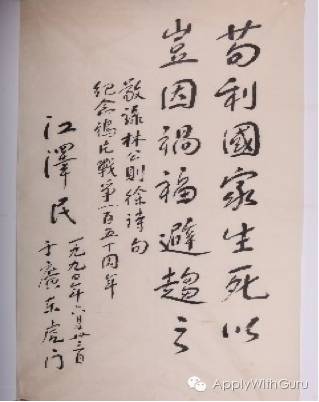 苟利國家生死以
豈因禍福避趨之
敬錄林公則徐詩句
紀念鴉片戰爭一百五十周年
江澤民
一九九〇年六月廿三日
于廣东虎门
ApplyWithGuru